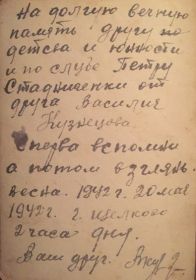 На долгую вечную
память другу по
детства и юности
и по службе Петру
Стадниченки от
друга Василие
Кузнецова
сперва вспомни
а потом взглянь.
весна. 1942 г. 20 мая
1942 г. г. Щелково
2 часа дня.
Ваш друг.